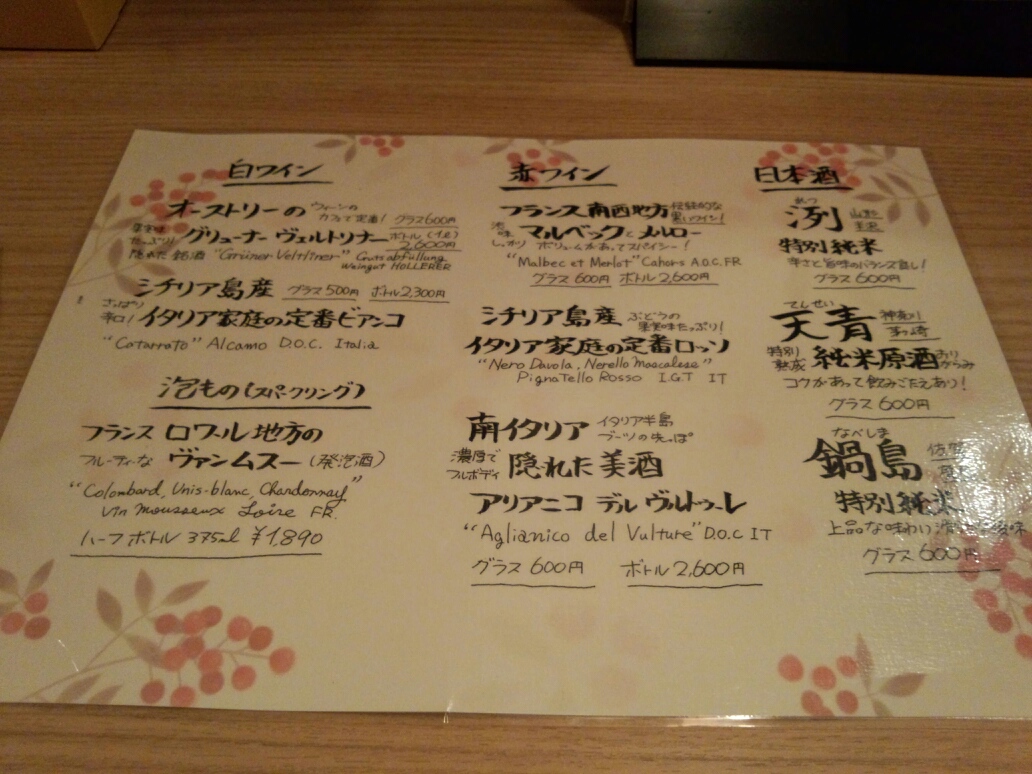 白ワイン
オーストリーの ウィーンの
カフェで定番! グラス600円
果実味
たっぷり! グリューナー ヴェルトリナー ボトル(1L)
2,600円
隠れた銘酒 "Grüner Veltliner" Gutsabfüllung
Weingut HÖLLERER
シチリア島産 グラス500円 ボトル2,300円
さっぱり
辛口! イタリア家庭の定番ビアンコ
"Catarrato" Alcamo D.O.C. Italia
泡もの(スパークリング)
フランス ロワール地方の
フルーティーな ヴァンムスー(発泡酒)
"Colombard, Unis-blanc, Chardonnay"
Vin Mousseux Loire FR.
ハーフボトル 375ml ¥1,890
赤ワイン
フランス南西地方 伝統的な
黒いワイン!
渋味
しっかり マルベックとメルロー
ボリュームがあってスパイシー!
"Malbec et Merlot" Cahors A.O.C. FR
グラス 600円 ボトル 2,600円
シチリア島産 ぶどうの
果実味たっぷり!
イタリア家庭の定番ロッソ
"Nero Davola, Nerello Mascalese"
Pignatello Rosso I.G.T IT
南イタリア イタリア半島
ブーツの先っぽ
濃厚で
フルボディ 隠れた美酒
アリアニコ デル ヴルトゥーレ
"Aglianico del Vulture" D.O.C IT
グラス 600円 ボトル 2,600円
日本酒
れつ
洌 山形
特別純米
辛さと旨味のバランス良し!
グラス 600円
てんせい
天青 神奈川
茅ヶ崎
特別
熟成 純米原酒 おり
がらみ
コクがあって飲みごたえあり!
グラス 600円
なべしま
鍋島
特別純米
上品な味わい
グラス 600円